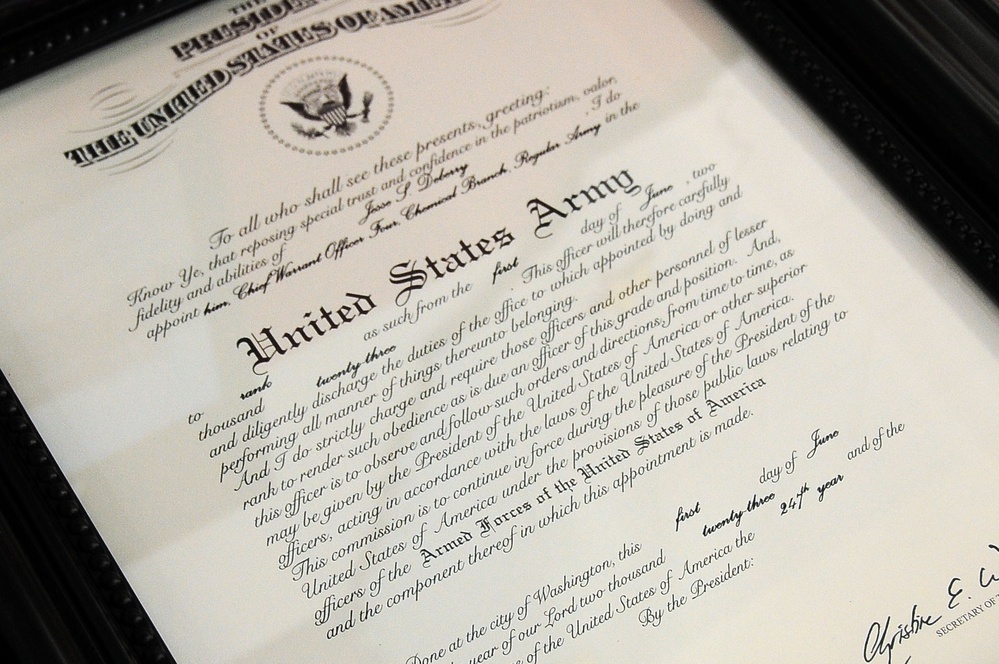 THE
PRESIDENT
OF
THE UNITED STATES OF AMERICA
To all who shall see these presents, greeting:
Know Ye, that reposing special trust and confidence in the patriotism, valor,
fidelity and abilities of Jesse S. Deberry , I do
appoint him, Chief Warrant Officer Four, Chemical Branch, Regular Army in the
United States Army
to rank as such from the first day of June , two
thousand twenty three This officer will therefore carefully
and diligently discharge the duties of the office to which appointed by doing and
performing all manner of things thereunto belonging.
And I do strictly charge and require those officers and other personnel of lesser
rank to render such obedience as is due an officer of this grade and position. And,
this officer is to observe and follow such orders and directions, from time to time, as
may be given by the President of the United States of America or other superior
officers, acting in accordance with the laws of the United States of America.
This commission is to continue in force during the pleasure of the President of the
United States of America under the provisions of those public laws relating to
officers of the Armed Forces of the United States of America
and the component thereof in which this appointment is made.
Done at the city of Washington, this first day of June
year of our Lord two thousand twenty three and of the
of the United States of America the 24th year
By the President:
Christine E.
SECRETARY OF